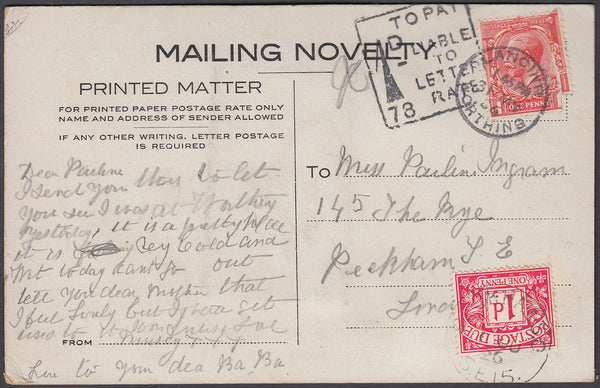 MAILING NOVELTY
PRINTED MATTER
FOR PRINTED PAPER POSTAGE RATE ONLY
NAME AND ADDRESS OF SENDER ALLOWED
IF ANY OTHER WRITING, LETTER POSTAGE
IS REQUIRED
Dear Pauline
I send you this to let
you see I was at Worthing
yesterday, it is a pretty place
it is Cold and
Wet to day cant go out
tell you dear that
I but I hope get
used to it
FROM
love to your dea Ba. Ba.
TO PAY
1D
LIABLE
TO
LETTER
RATE
78
LANCING
WORTHING
ONE PENNY
TO Miss Pauline Ingram
145 The Rye
Peckham S. E
London
ONE PENNY
1d
POSTAGE DUE
S.E.15.